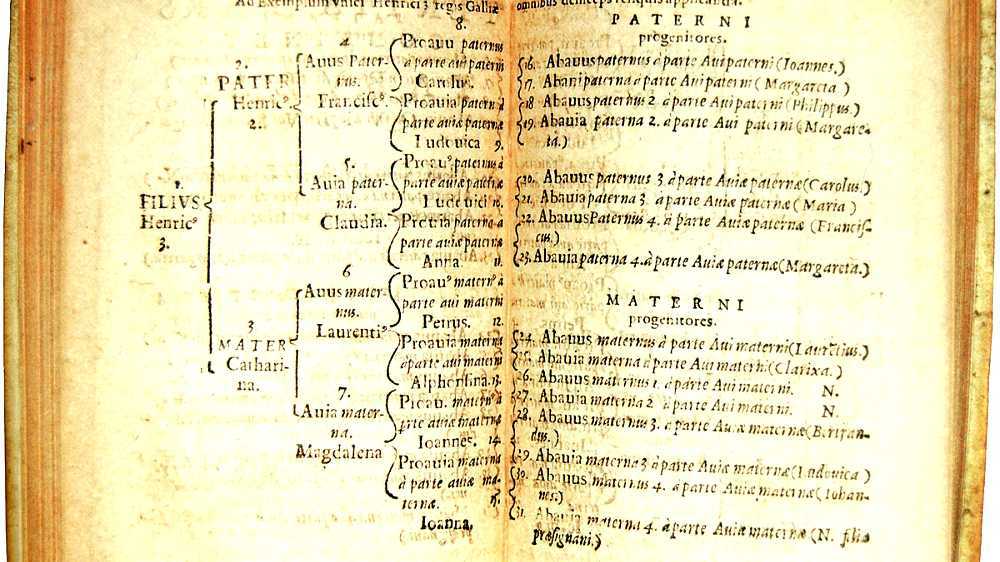 Ad Exemplum vnici Henrici 3 regis Galliæ
8.
4
Proauu paternus
Auus Pater-
à parte aui paterni
2.
rus.
Carolus.
PATER
Henric⁹.
Francisc⁹.
Proauia paterna à
2.
parte auiæ paternæ
Ludouica 9.
5.
Proau⁹ paternus à
Auia pater-
parte auiæ paternæ
1.
na.
Ludouici 10.
FILIVS
Claudia.
Proauia paterna à
Henric⁹
parte auiæ paternæ
3.
Anna. 11.
6
Proau⁹ matern⁹ à
Auus mater-
parte aui materni
nus.
Petrus. 12.
3
Laurenti⁹
Proauia materna
MATER
à parte aui materni
Cathari-
Alphonsina. 13.
na.
7.
Proau. matern⁹ à
Auia mater-
parte auiæ maternæ
na.
Ioannes. 14.
Magdalena
Proauia materna
à parte auiæ ma-
ternæ. 15.
Ioanna.
omnibus deinceps reliquis applicanda.
PATERNI
progenitores.
16. Abauus paternus à parte Aui paterni (Ioannes.)
17. Abani paterna à parte Aui paterni (Margareta)
18 Abauus paternus 2. à parte Aui paterni (Philippus.)
19. Abauia paterna 2. à parte Aui paterni (Margare-
ta.)
20. Abauus paternus 3 à parte Auiæ paternæ (Carolus.)
21. Abauia paterna 3. à parte Auiæ paternæ (Maria)
22. Abauus Paternus 4. à parte Auiæ paternæ (Francis-
cus.)
23. Abauia paterna 4. à parte Auiæ paternæ (Margareta.)
MATERNI
progenitores.
24. Abauus maternus à parte Aui materni (Laurētius.)
25. Abauia materna à parte Aui materni (Clarixa.)
26. Abauus maternus 1. à parte Aui materni. N.
27. Abauia materna 2 à parte Aui materni. N.
28. Abauus maternus 3. à parte Auiæ maternæ (Bertran-
dus.)
29. Abauia materna 3 à parte Auiæ maternæ (Ludouica)
30. Abauus maternus 4. à parte Auiæ maternæ (Iohan-
nes.)
31. Abauia materna 4. à parte Auiæ maternæ (N. filia
præsignani.)